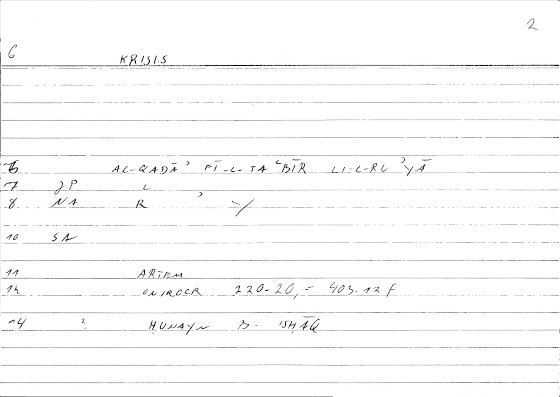 2
6 KRISIS
6 AL-QAḌĀʾ FĪ-L-TAʿBĪR LI-L-RUʾYĀ
7 JP L
8 NA R ʾ -y
10 SA
11 ARTEM
12 ONIROCR 220-20,= 403.12 f
14 ? ḤUNAYN B. ISḤĀQ